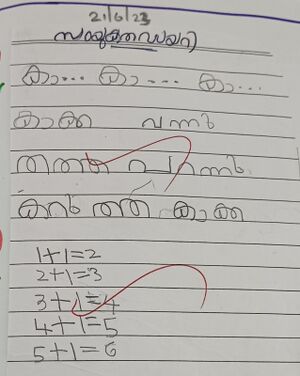 21/6/23
സംയുക്തഡയറി
കാ... കാ... കാ...
കാക്ക വന്നു
തത്ത പറന്നു
കറുത്ത കാക്ക
1+1=2
2+1=3
3+1=4
4+1=5
5+1=6